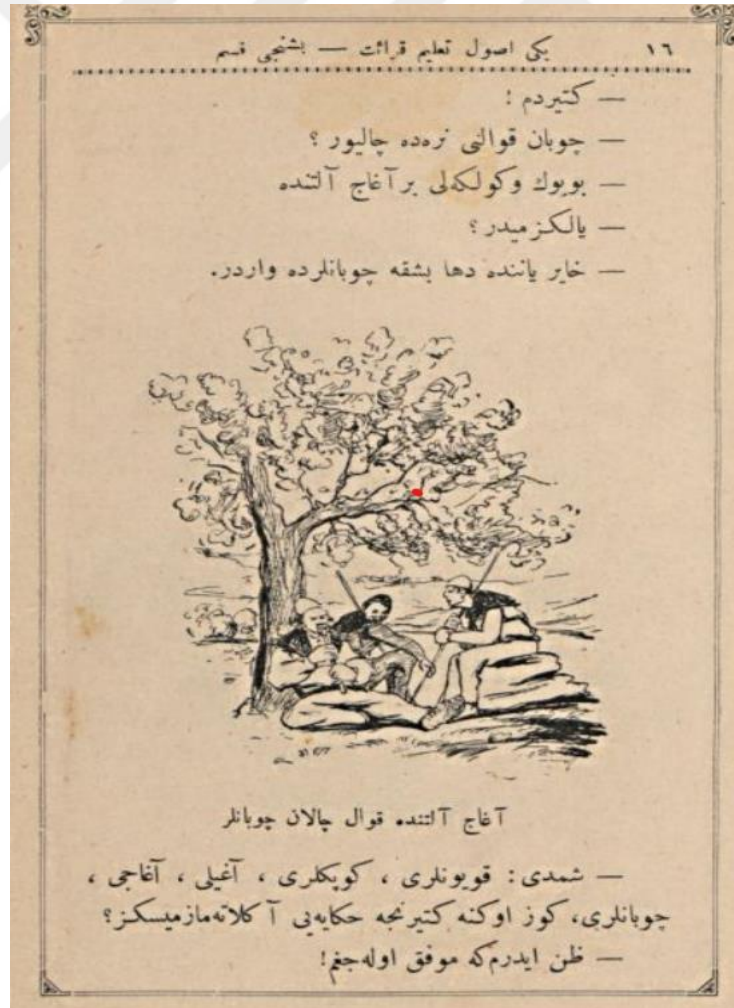 ١٦ يكى اصول تعليم قرائت — بشنجى قسم
— كتيردم !
— چوبان قوالنى نره‌ده چاليور ؟
— بويوك وكولكه‌لى بر آغاج آلتنده
— يالكز ميدر ؟
— خاير ياننده دها بشقه چوبانلرده واردر.
آغاج آلتنده قوال چالان چوبانلر
— شمدى : قويونلرى ، كوپكلرى ، آغيلى ، آغاجى ،
چوبانلرى، كوز اوكنه كتيرنجه حكايه‌يى آكلاته‌مازميسكز؟
— ظن ايدرم‌كه موفق اوله‌جغم!